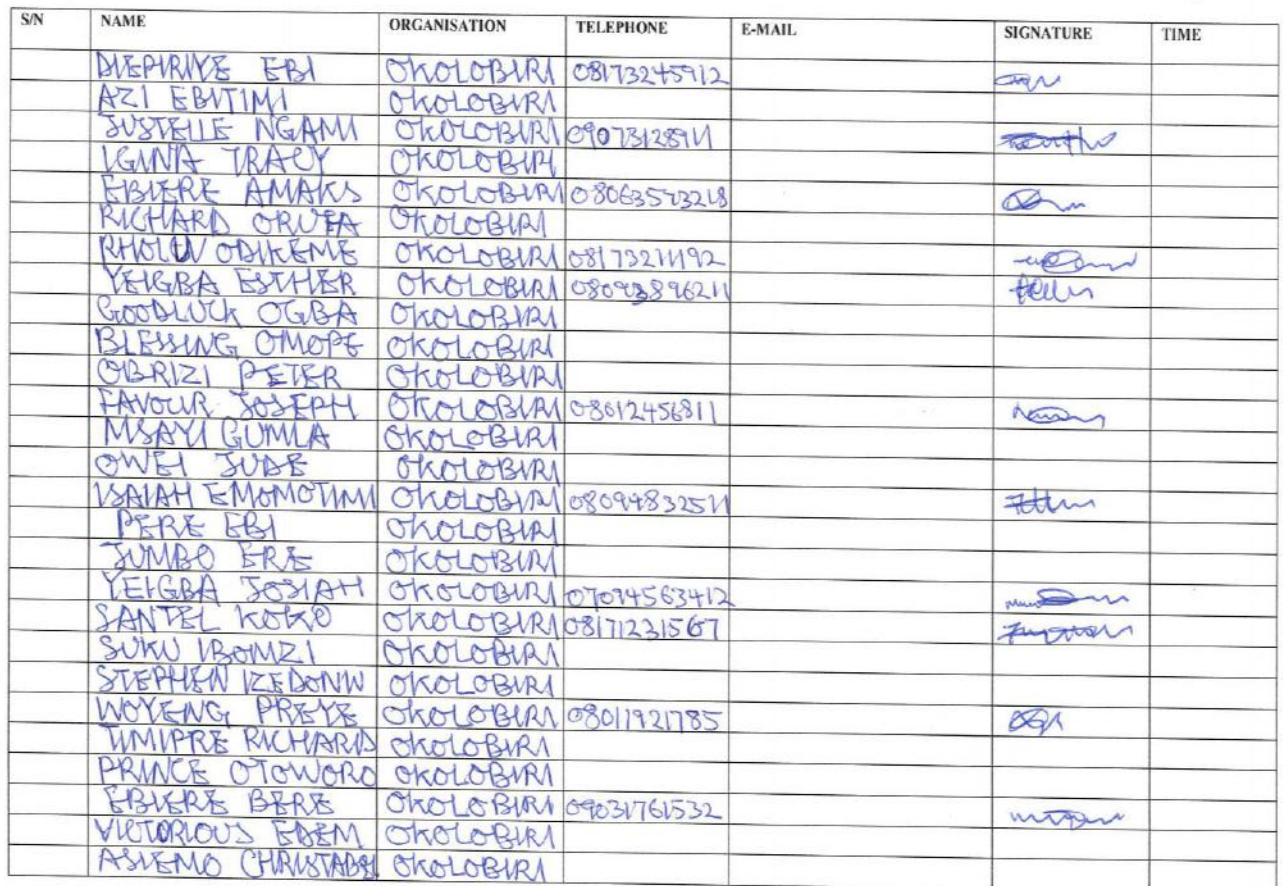 S/N NAME ORGANISATION TELEPHONE E-MAIL SIGNATURE TIME
DIEPIRIYE EBI OKOLOBIRI 08173245912
AZI EBITIMI OKOLOBIRI
JUSTELLE NGAMI OKOLOBIRI 09073128911
IGINA TRACY OKOLOBIRI
EBIERE AMAKS OKOLOBIRI 08063573218
RICHARD ORUFA OKOLOBIRI
ODIKEME OKOLOBIRI 08173211192
YEIGBA ESTHER OKOLOBIRI 08093896211
GOODLUCK OGBA OKOLOBIRI
BLESSING OMOPE OKOLOBIRI
OBRIZI PETER OKOLOBIRI
FAVOUR JOSEPH OKOLOBIRI 08012456811
MSAYI GUMLA OKOLOBIRI
OWEI JUDE OKOLOBIRI
ISAIAH EMOMOTIMI OKOLOBIRI 08094832511
PERE EBI OKOLOBIRI
JUMBO ERE OKOLOBIRI
YEIGBA JOSIAH OKOLOBIRI 07094563412
SANTEL KOKO OKOLOBIRI 08171231567
SUKU IBOMZI OKOLOBIRI
STEPHEN IZEDONW OKOLOBIRI
WOYENG PREYE OKOLOBIRI 08011921785
TIMIPRE RICHARD OKOLOBIRI
PRINCE OTOWORO OKOLOBIRI
EBIERE BERE OKOLOBIRI 09031761532
VICTORIOUS EDEM OKOLOBIRI
ASIEMO CHRISTABEL OKOLOBIRI